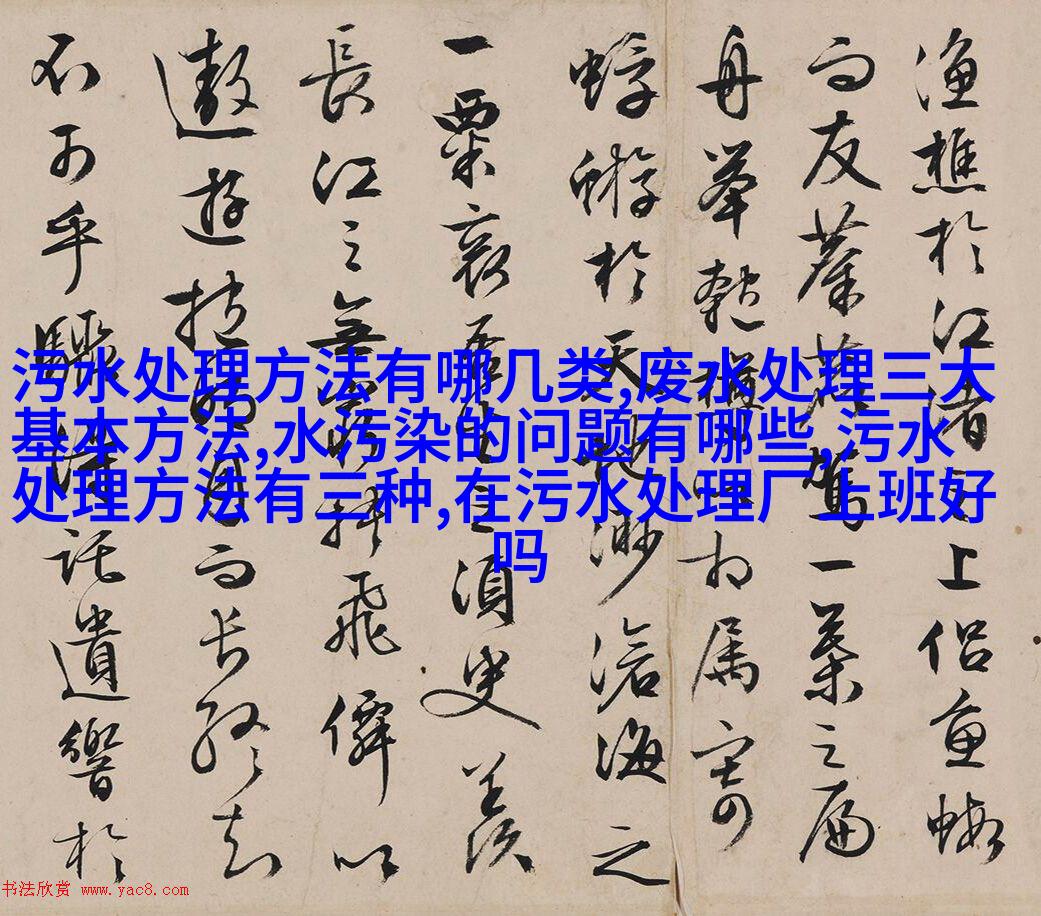 渔樵於江渚之上侣鱼蝦
而友麋鹿駕一葉之扁
舟舉匏樽以相属寄
蜉蝣於天地渺滄海之
一粟哀吾生之須臾羨
長江之無窮挾飛僊以
遨遊抱明月而长终知
不可乎驟得託遺響於
污水处理方法有哪几类,废水处理三大
基本方法,水污染的问题有哪些,污水
处理方法有三种,在污水处理厂上班好
吗
书法欣赏 www.yac8.com